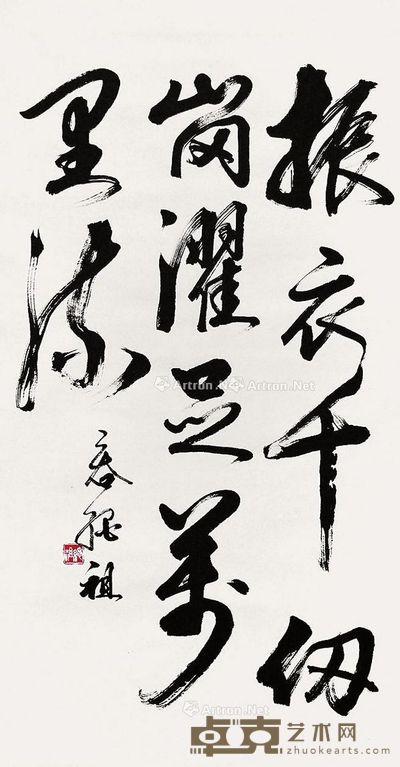 振衣千仞
崗濯足萬
里流
祖
Artron.Net Artron.Net
Artron.Net
卓克艺术网
zhuokearts.com